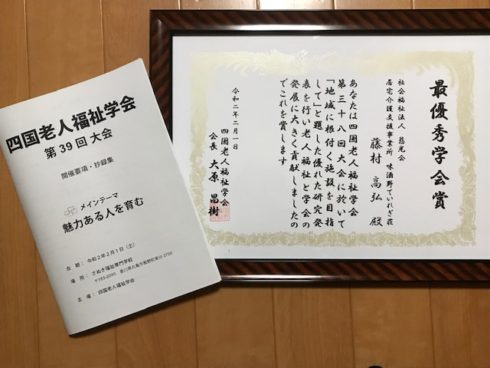 四国老人福祉学会
第39回大会
開催要項・抄録集
メインテーマ
魅力ある人を育む
会期：令和2年2月1日（土）
場所：さぬき福祉専門学校
主催：四国老人福祉学会
最優秀学会賞
社会福祉法人 慈光会
居宅介護支援事業所 味酒野ていれぎ荘
藤村 高弘 殿
あなたは四国老人福祉学会
第三十八回大会に於いて
「地域に根付く施設を目指
して」と題した優れた研究発
表を行い老人福祉と学会の
発展に大きく貢献しましたの
でこれを賞します
令和二年二月一日
四国老人福祉学会
会長 大原 昌樹